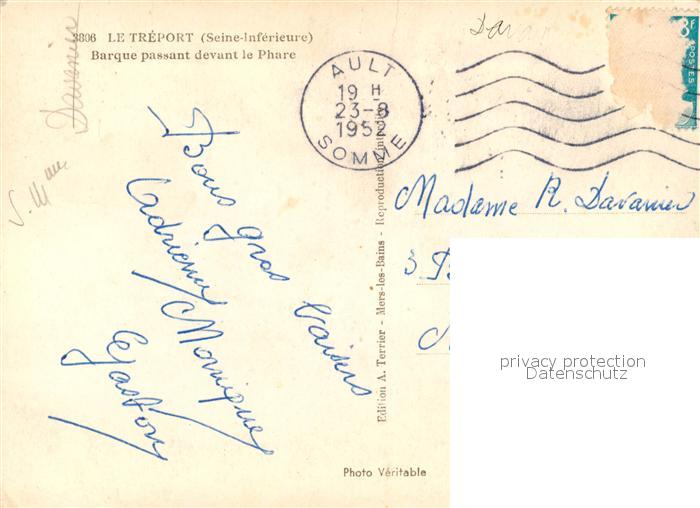 3806 LE TRÉPORT (Seine-Inférieure)
Barque passant devant le Phare
AULT
19 H
23-8
1952
SOMME
8F
POSTES
Davanier
Bons gros baisers
Adrienne
Monique
Gaston
Edition A. Terrier - Mers-les-Bains - Reproduction interdite
Madame R. Davanier
3
privacy protection
Datenschutz
Photo Véritable